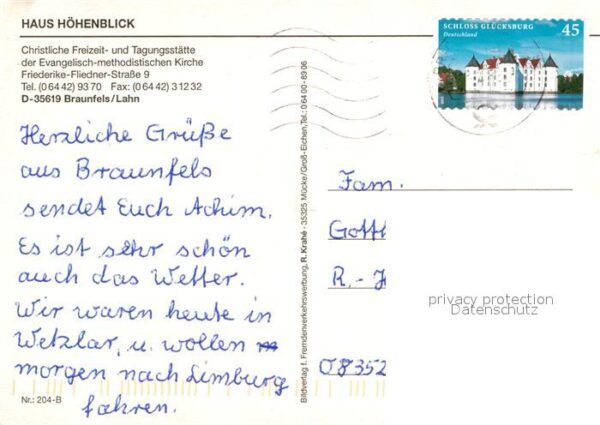 HAUS HÖHENBLICK
Christliche Freizeit- und Tagungsstätte
der Evangelisch-methodistischen Kirche
Friederike-Fliedner-Straße 9
Tel. (0 64 42) 93 70 Fax: (0 64 42) 3 12 32
D-35619 Braunfels/Lahn
Herzliche Grüße
aus Braunfels
sendet Euch Achim.
Es ist sehr schön
auch das Wetter.
Wir waren heute in
Wetzlar, u. wollen
morgen nach Limburg
fahren.
Nr.: 204-B
Bildverlag f. Fremdenverkehrswerbung, R. Krahé · 35325 Mücke/Groß-Eichen, Tel.: 0 64 00 - 89 06
SCHLOSS GLÜCKSBURG 45
Deutschland
Fam.
Gott
R.-
privacy protection
Datenschutz
08352